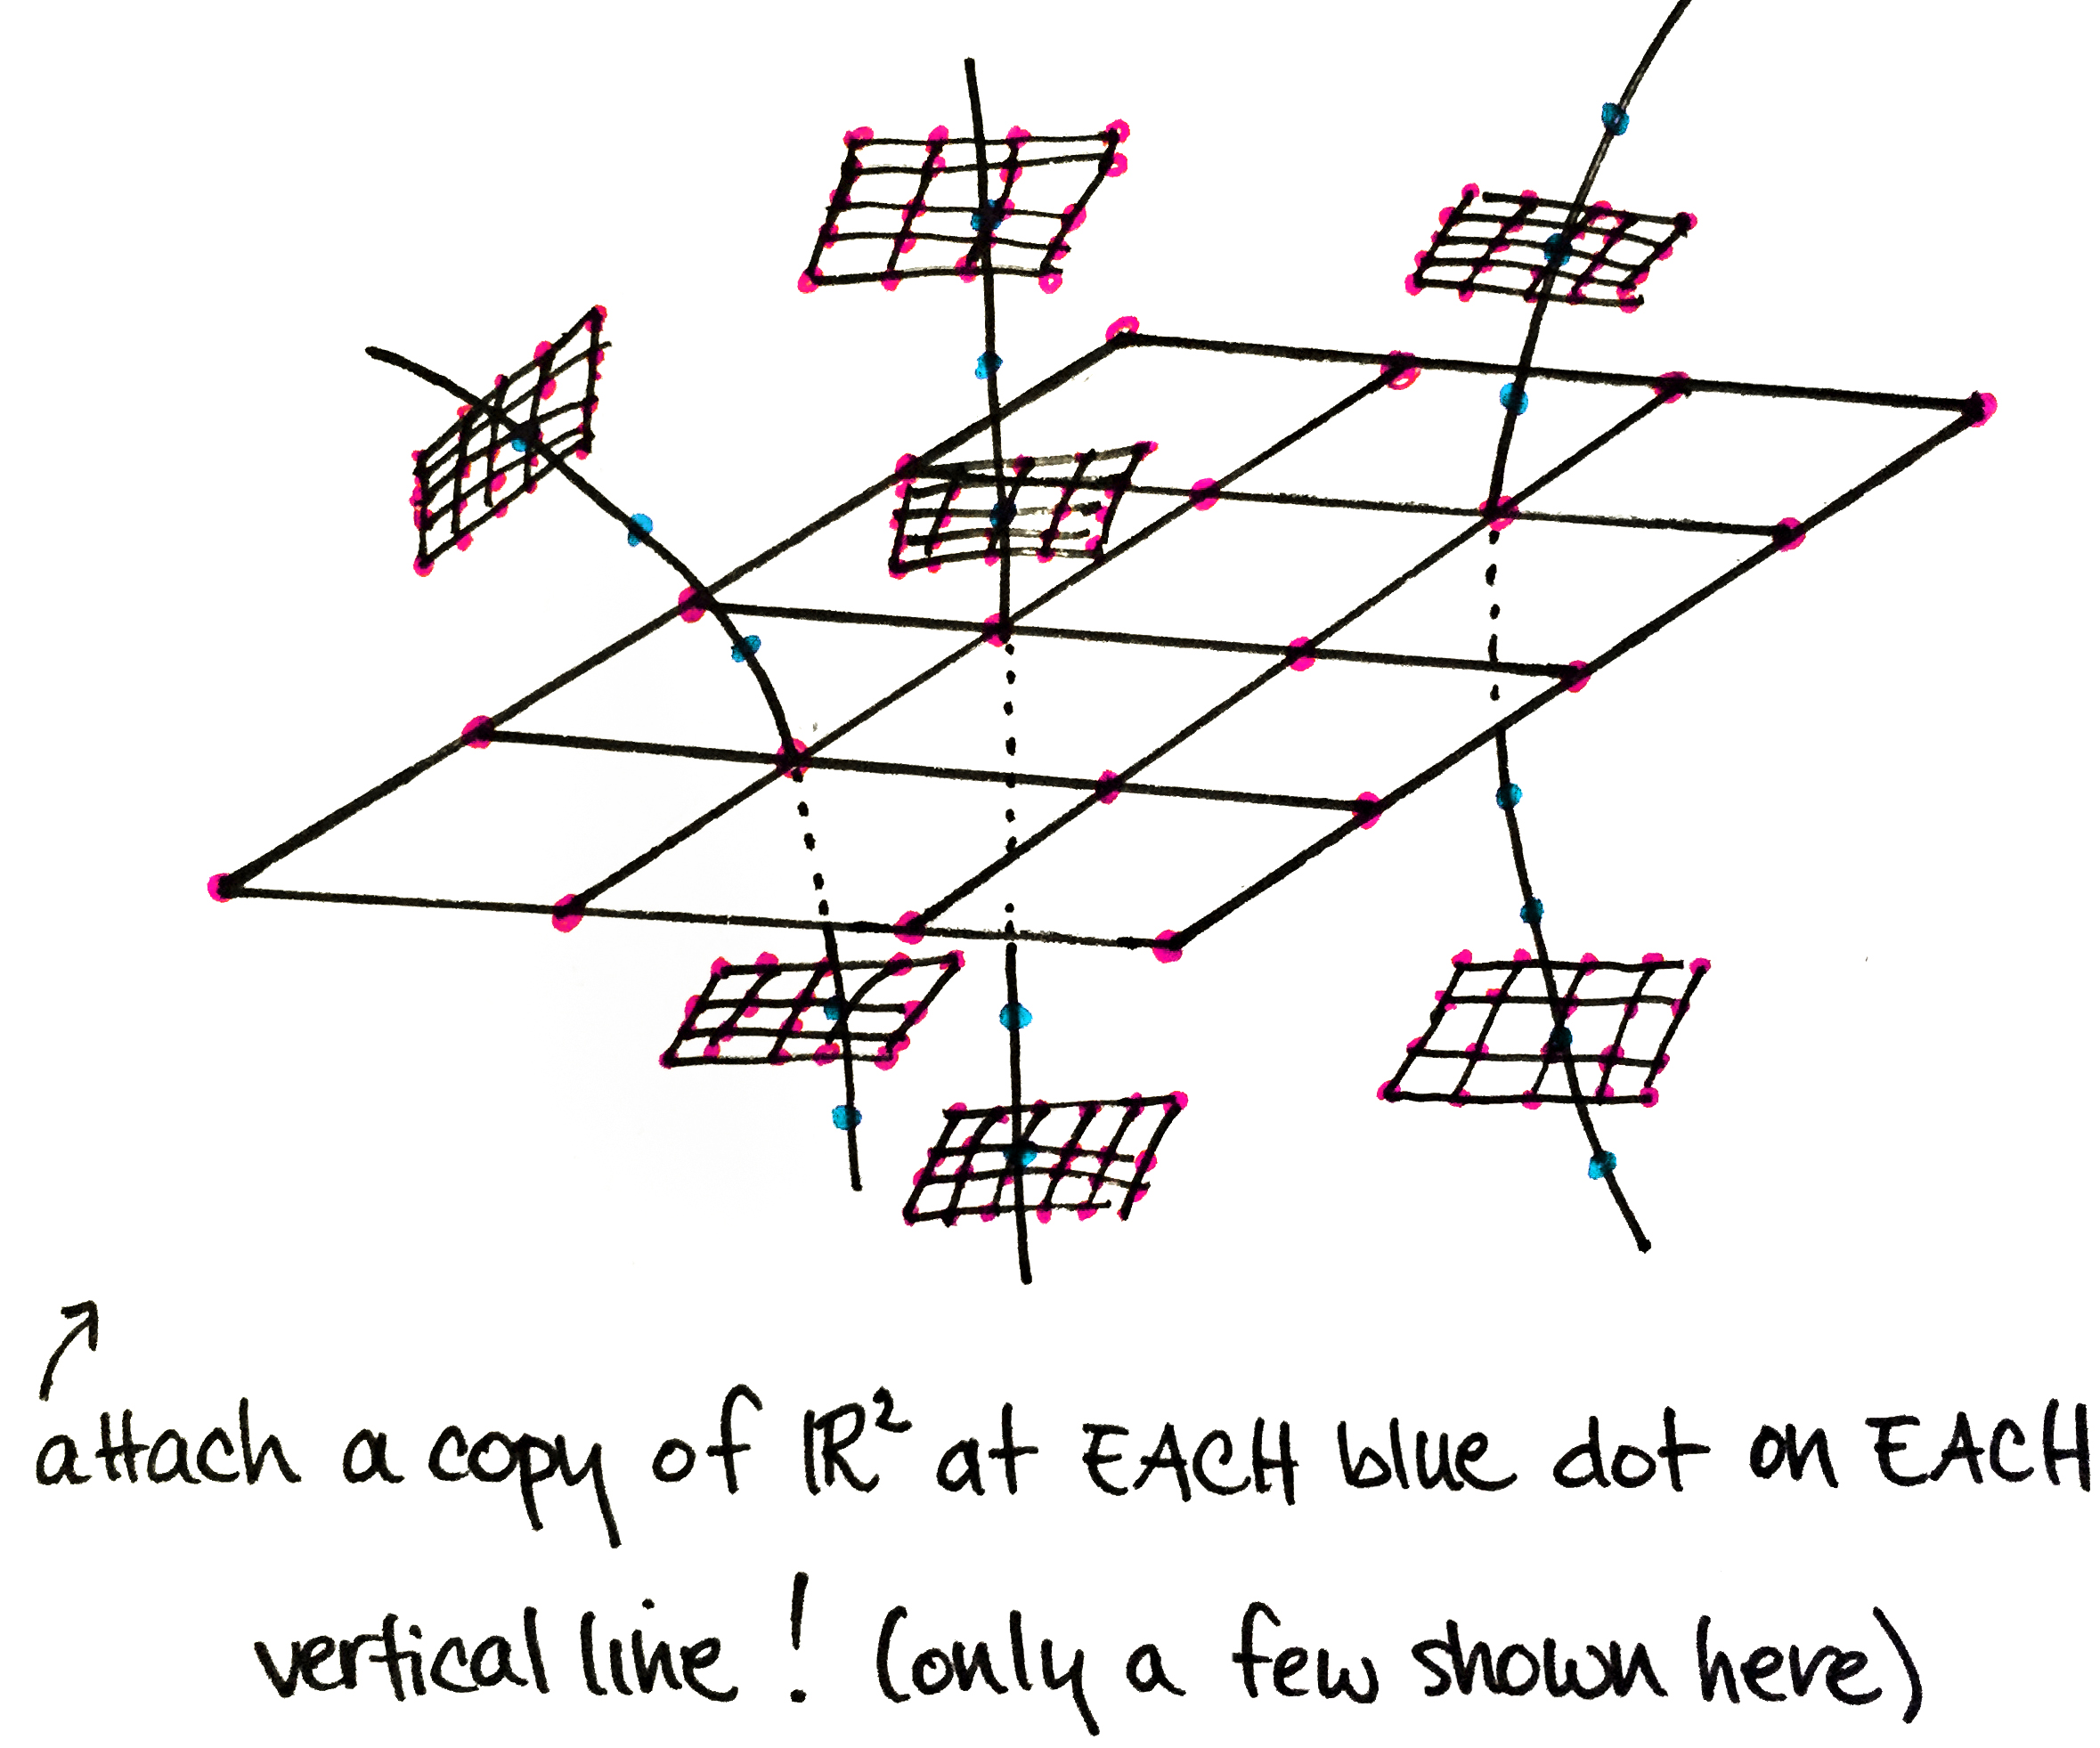 attach a copy of ℝ² at EACH blue dot on EACH
vertical line! (only a few shown here)